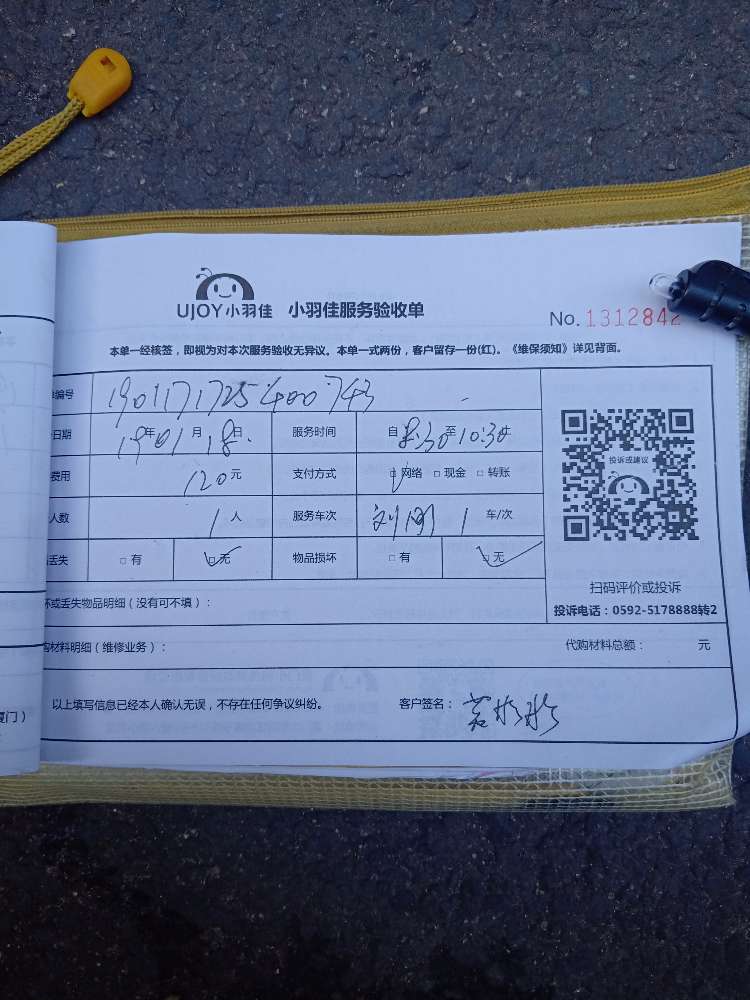 UJOY小羽佳 小羽佳服务验收单
No. 1312842
本单一经核签，即视为对本次服务验收无异议。本单一式两份，客户留存一份(红)。《维保须知》详见背面。
编号 1901171725400743
日期 19年01月18日. 服务时间 自8:30至10:30
费用 120元 支付方式 □网络 □现金 □转账
人数 1人 服务车次 1 车/次
丢失 □有 □无 物品损坏 □有 □无
投诉或建议
扫码评价或投诉
投诉电话：0592-5178888转2
坏或丢失物品明细（没有可不填）：
购材料明细（维修业务）： 代购材料总额： 元
以上填写信息已经本人确认无误，不存在任何争议纠纷。 客户签名：
厦门）